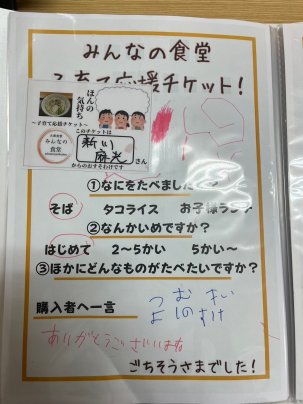 みんなの食堂
応援チケット!
ほんの
気持ち
〜子育て応援チケット〜
みんなの
食堂
このチケットは
新川
さん
からのおすそわけです
①なにをたべました
そば タコライス お子様ランチ
②なんかいめですか?
はじめて 2〜5かい 5かい〜
③ほかにどんなものがたべたいですか?
購入者へ一言
ありがとうございます
ごちそうさまでした!